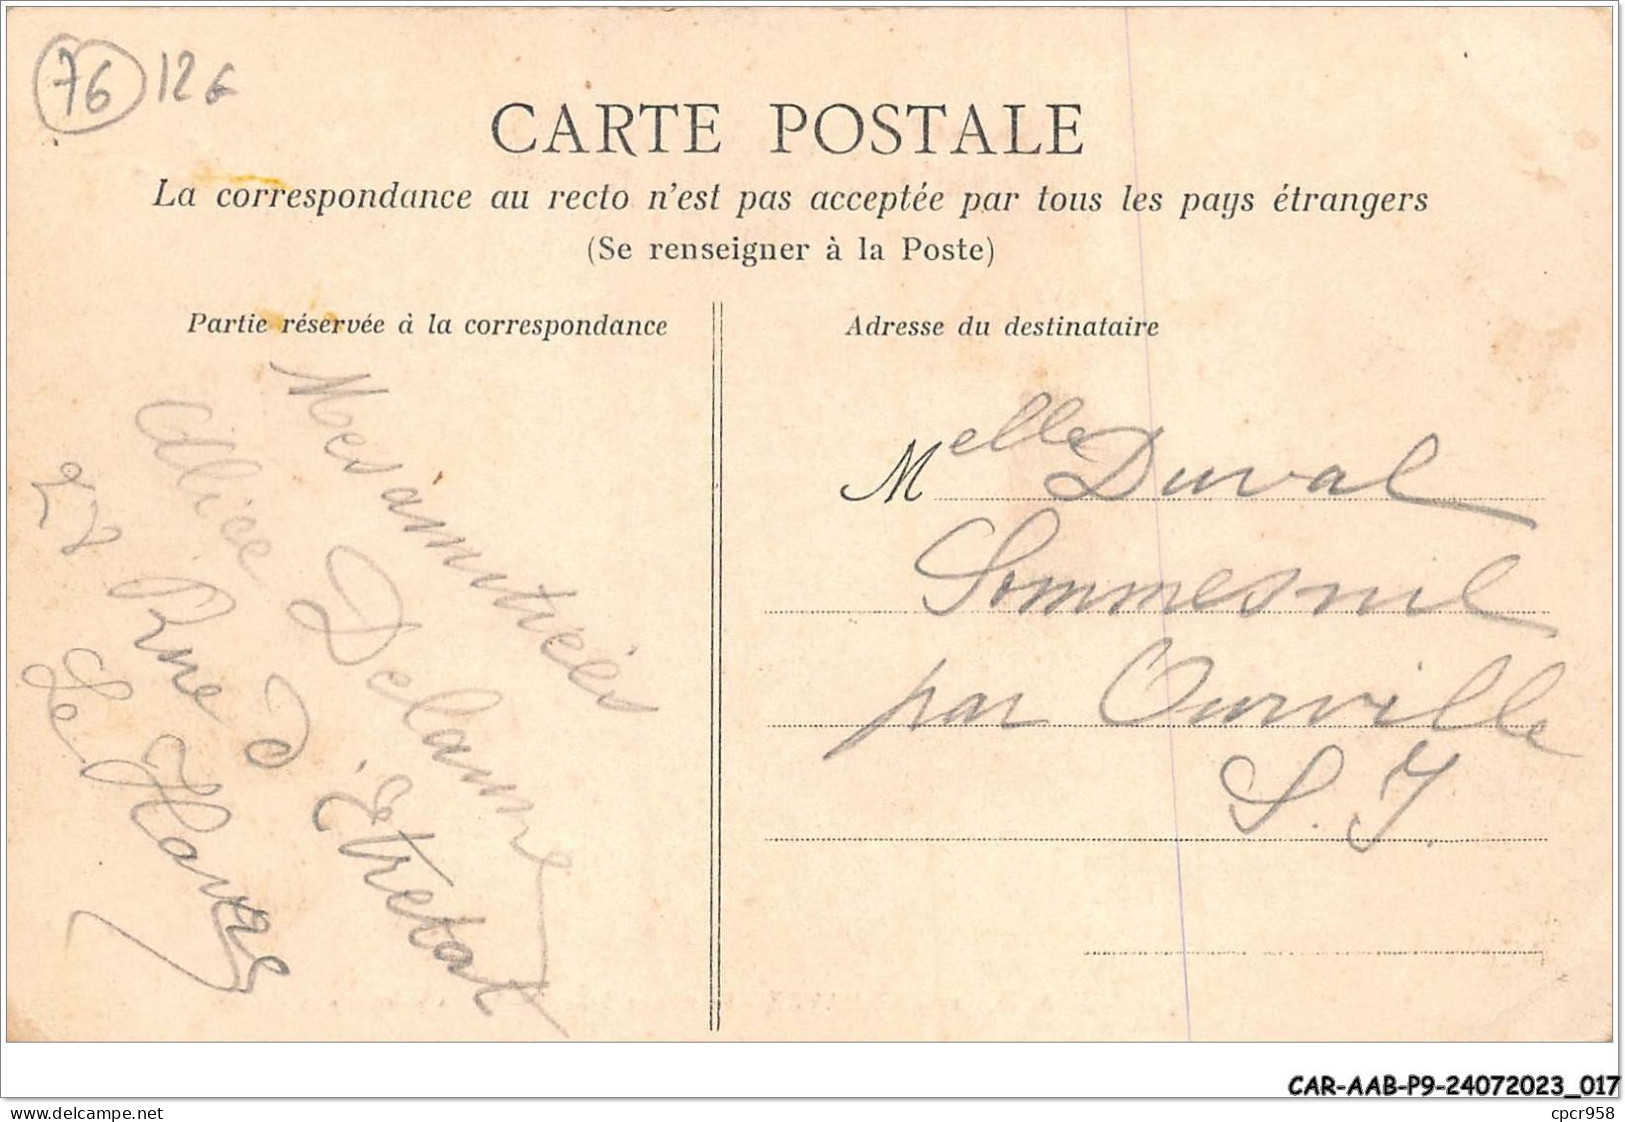 76 12€
CARTE POSTALE
La correspondance au recto n'est pas acceptée par tous les pays étrangers
(Se renseigner à la Poste)
Partie réservée à la correspondance
Mes amitiés
Alice Delaune
27 Rue D'Etretat
Le Havre
Adresse du destinataire
Melle Duval
Sommesnil
par Ourville
S. I.
CAR-AAB-P9-24072023_017
www.delcampe.net
cpcr958